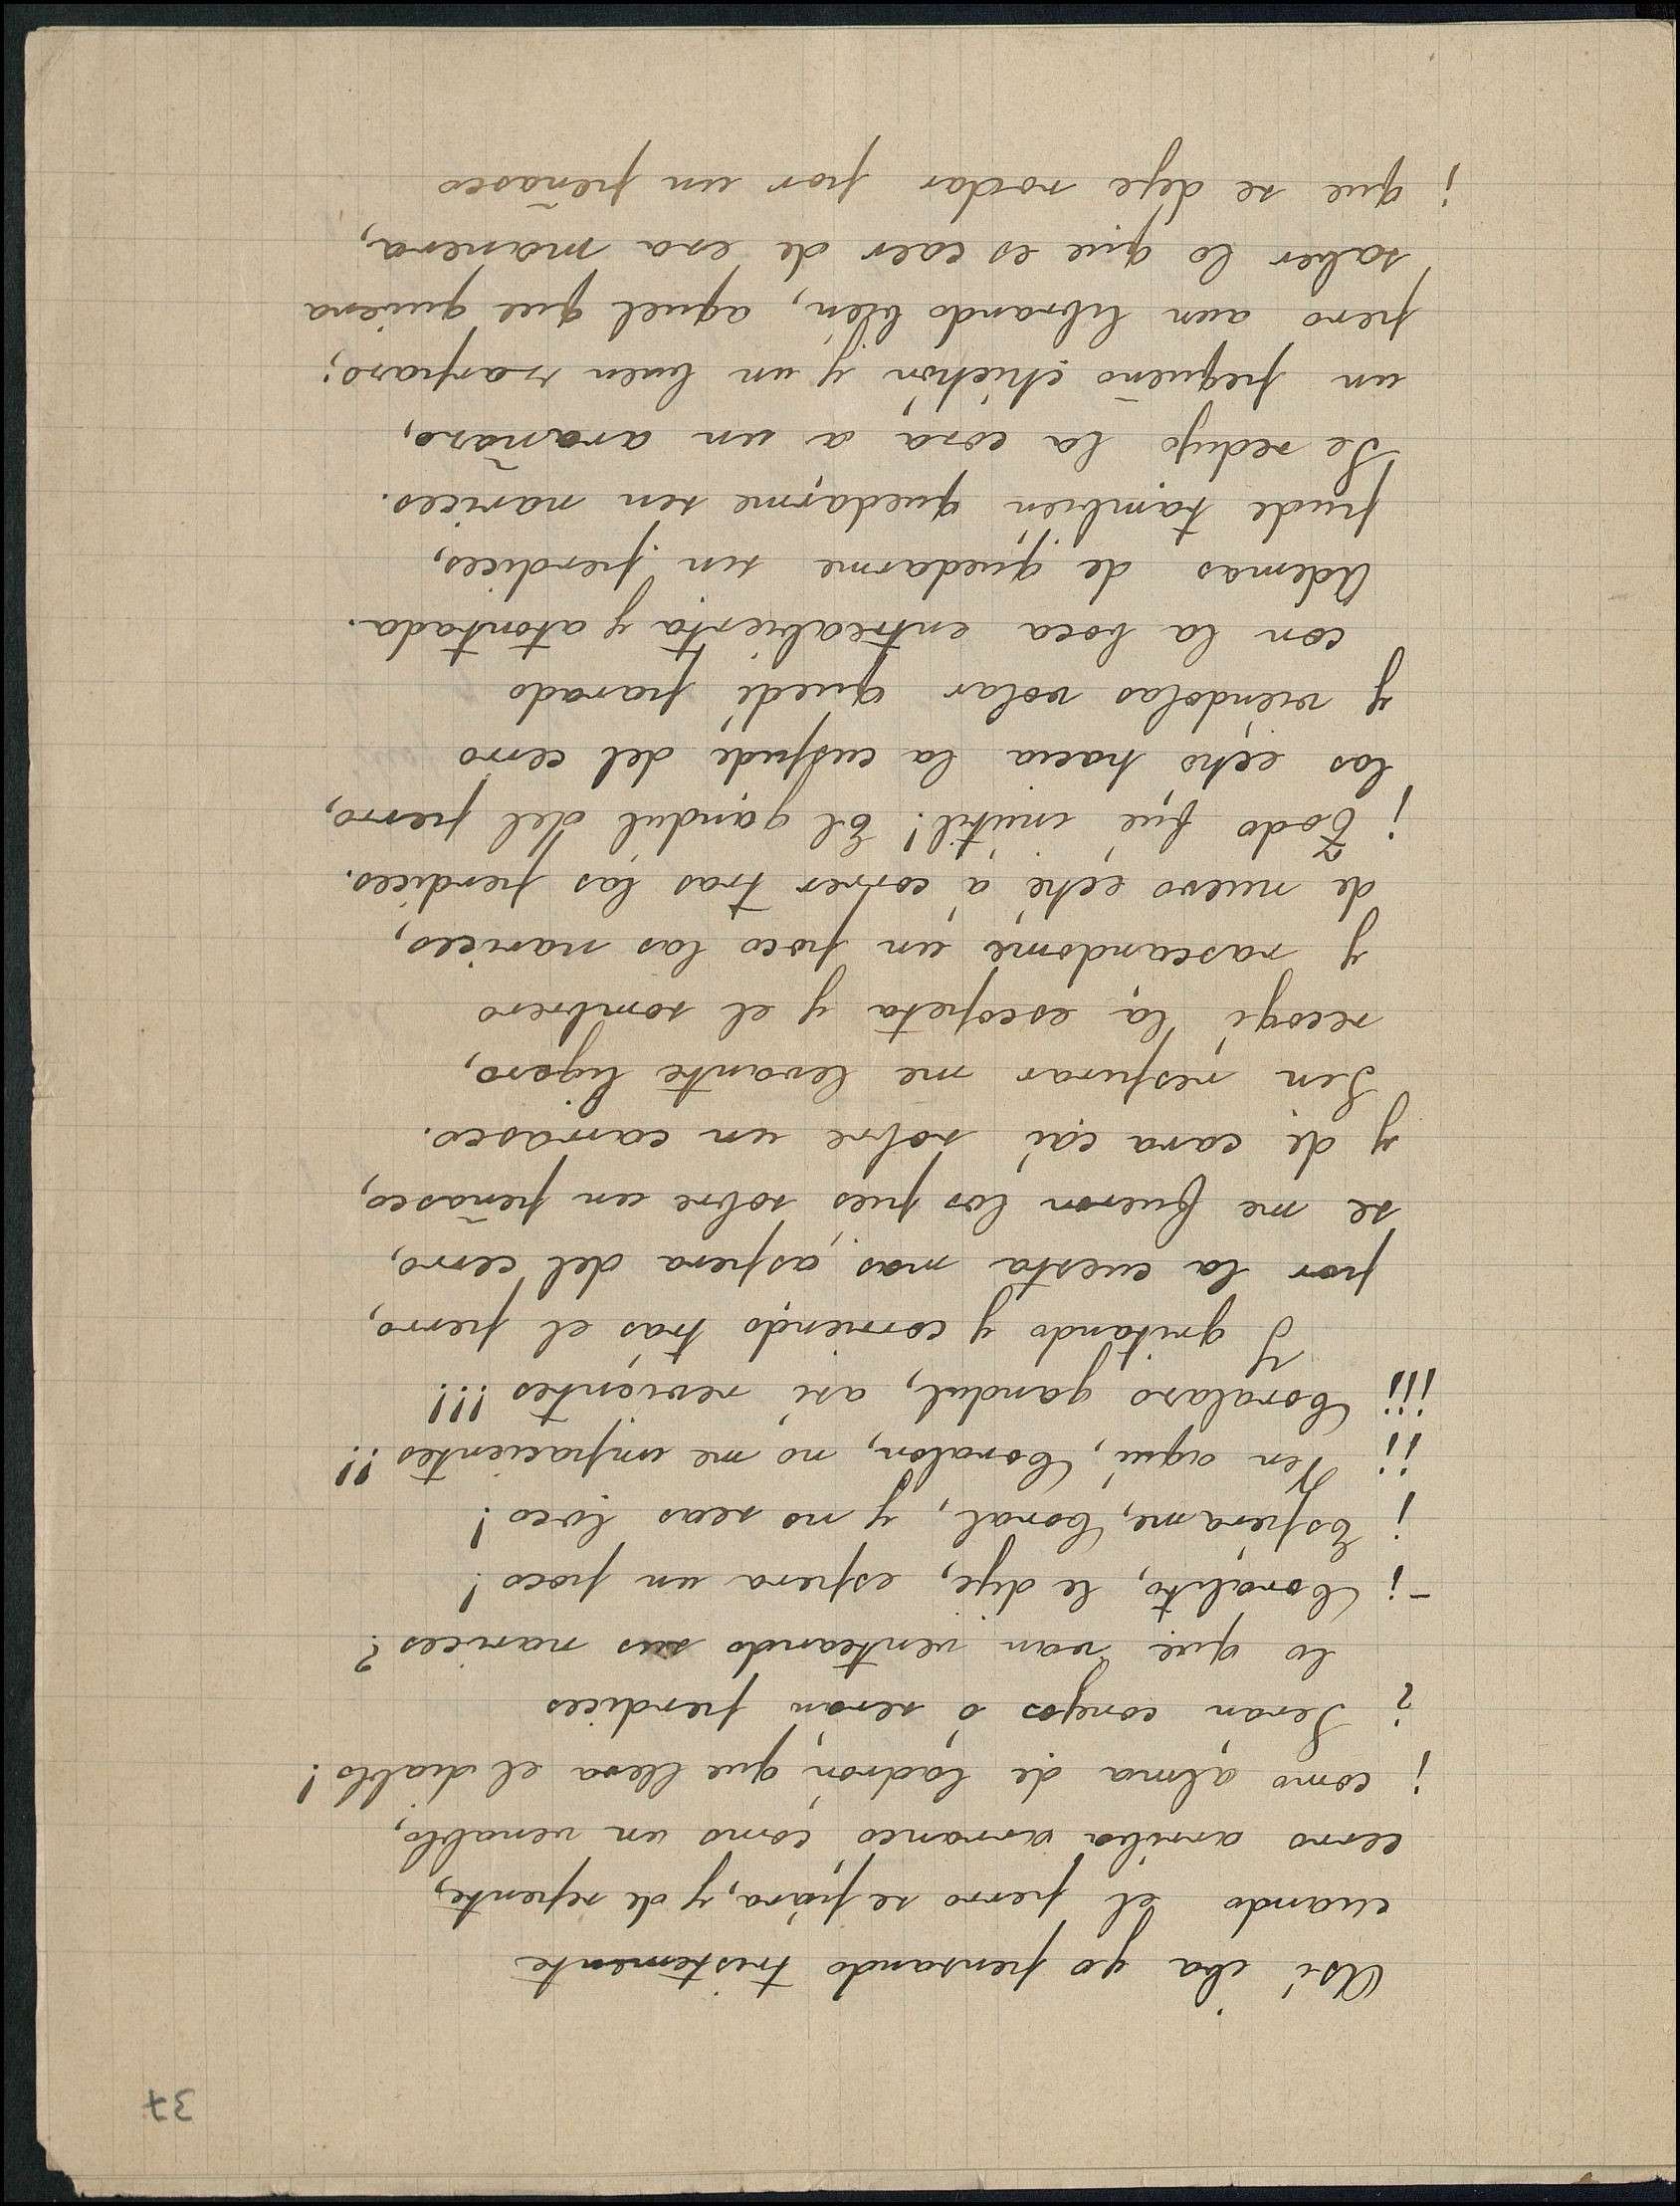 37
Asi iba yo pensando tristemente
cuando el perro se pára, y de repente,
cerro arriba arrancó como un venablo,
¡ como alma de ladrón que lleva el diablo!
¿ Serán conejos ó serán perdices
lo que van venteando sus narices?
-¡ Coralito, le dije, espera un poco!
¡ Espérame, Coral, y no seas loco!
¡¡ Ven aquí, Coralón, no me impacientes!!
¡¡¡ Coralazo gandul, así revientes!!!
Y gritando y corriendo trás el perro,
por la cuesta mas áspera del cerro,
se me fueron los pies sobre un peñasco,
y de cara caí sobre un carrasco.
Sin respirar me levanté ligero,
recogí la escopeta y el sombrero
y rascandome un poco las narices,
de nuevo eché á correr tras las perdices.
¡ Todo fué inútil! El gandul del perro,
las echó hacia la cuspide del cerro
y viéndolas volar quedé parado
con la boca entreabierta y atontada.
Ademas de quedarme sin perdices,
pude tambien quedarme sin narices.
Se redujo la cosa a un arañazo,
un pequeño chichón y un buen zarpazo;
pero aun librando bien, aquel que quiera
saber lo que es caer de esa manera,
¡ que se deje rodar por un peñasco